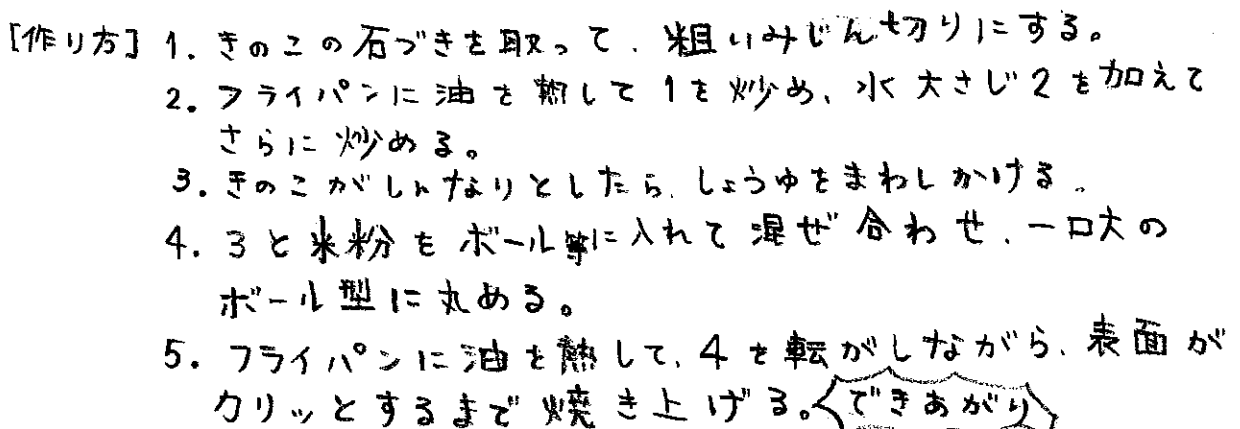 [作り方] 1. きのこの石づきを取って、粗いみじん切りにする。
2. フライパンに油を熱して1を炒め、水大さじ2を加えて
さらに炒める。
3. きのこがしんなりとしたら、しょうゆをまわしかける。
4. 3と米粉をボール等に入れて混ぜ合わせ、一口大の
ボール型に丸める。
5. フライパンに油を熱して、4を転がしながら、表面が
カリッとするまで焼き上げる。できあがり